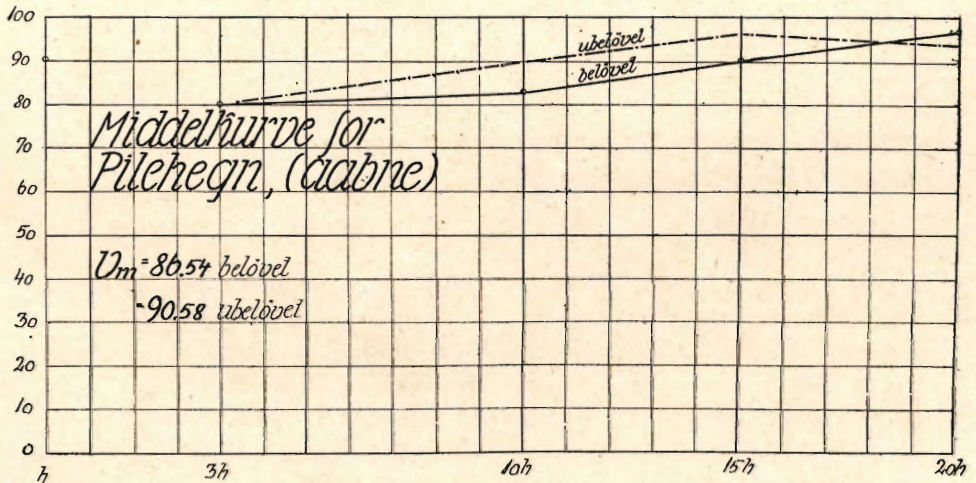 100
90
80
70
60
50
40
30
20
10
0
ubelövel
belövel
Middelkurve for
Pilehegn, (aabne)
Um = 86.54 belövel
= 90.58 ubelövel
h
3h
10h
15h
20h